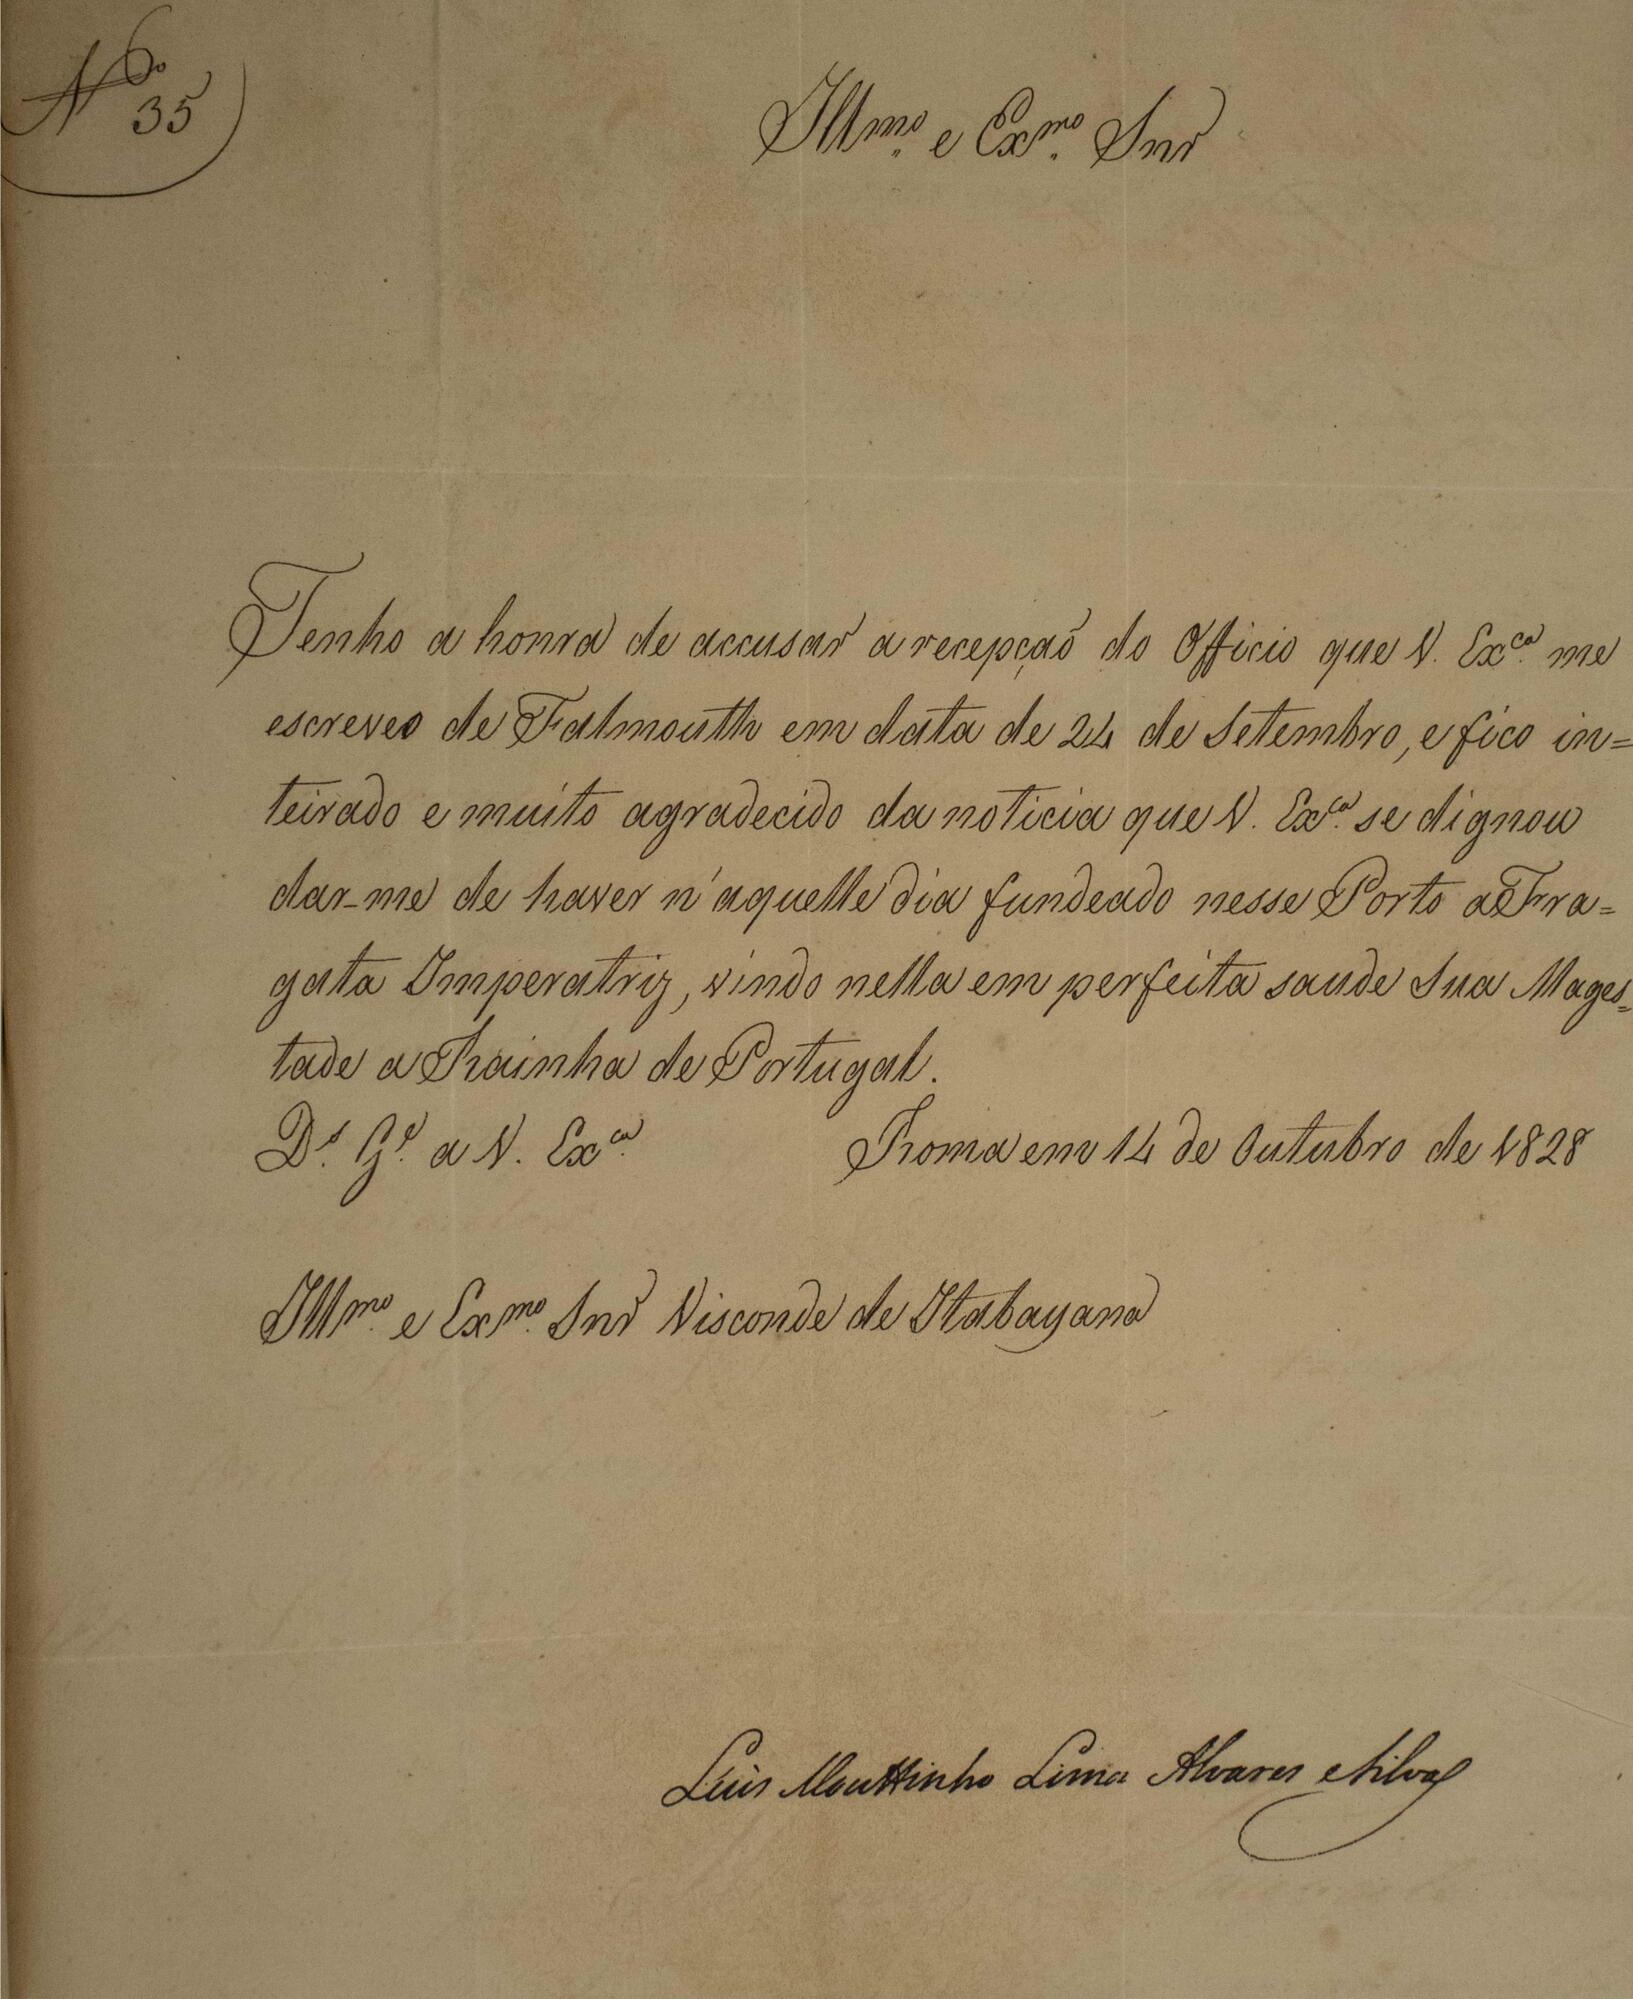 Nº 35
Illmo. e Exmo. Snr
Tenho a honra de accusar a recepçaõ do Officio que V. Exca. me
escreveo de Falmouth em data de 24 de Setembro, e fico in=
teirado e muito agradecido da noticia que V. Exca. se dignou
dar-me de haver n'aquelle dia fundeado nesse Porto a Fra=
gata Imperatriz, vindo nella em perfeita saude Sua Mages=
tade a Rainha de Portugal.
Ds. Ge. a V. Exca. Roma em 14 de Outubro de 1828
Illmo. e Exmo. Snr Visconde de Itabayana
Luis Mouttinho Lima Alvares e Silva